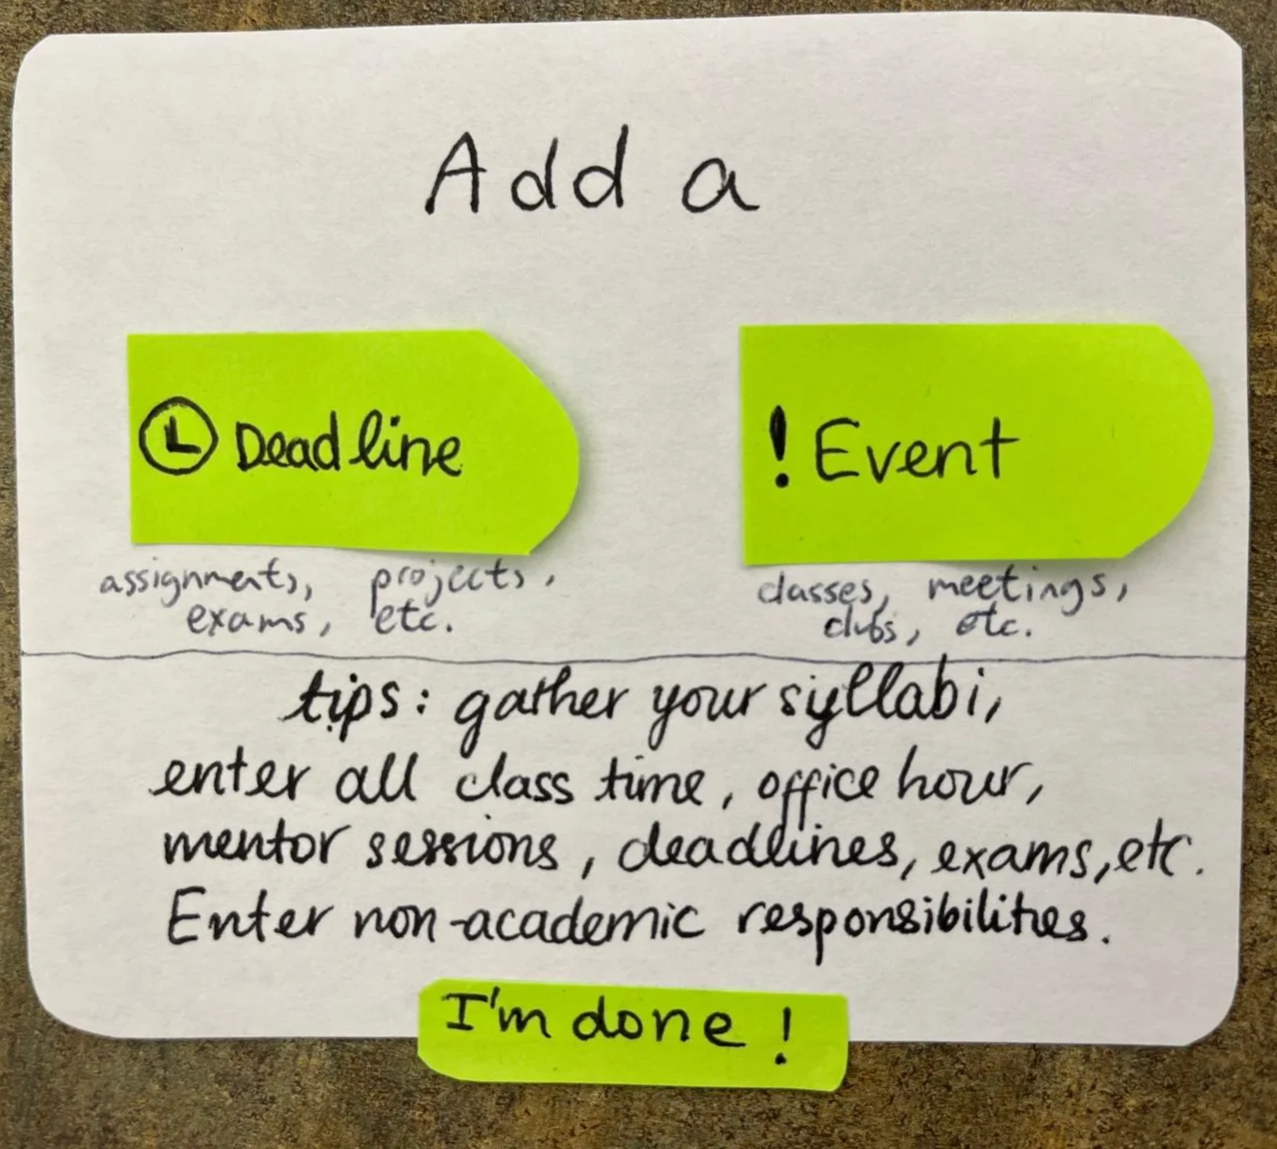 Add a
Deadline
! Event
assignments, projects,
exams, etc.
classes, meetings,
clubs, etc.
tips: gather your syllabi,
enter all class time, office hour,
mentor sessions, deadlines, exams, etc.
Enter non-academic responsibilities.
I'm done!